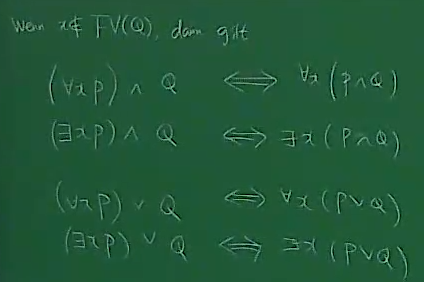 Wenn x∉ FV(Q), dann gilt
(∀x P) ∧ Q ⟺ ∀x (P∧Q)
(∃x P) ∧ Q ⟺ ∃x (P∧Q)
(∀x P) ∨ Q ⟺ ∀x (P∨Q)
(∃x P) ∨ Q ⟺ ∃x (P∨Q)